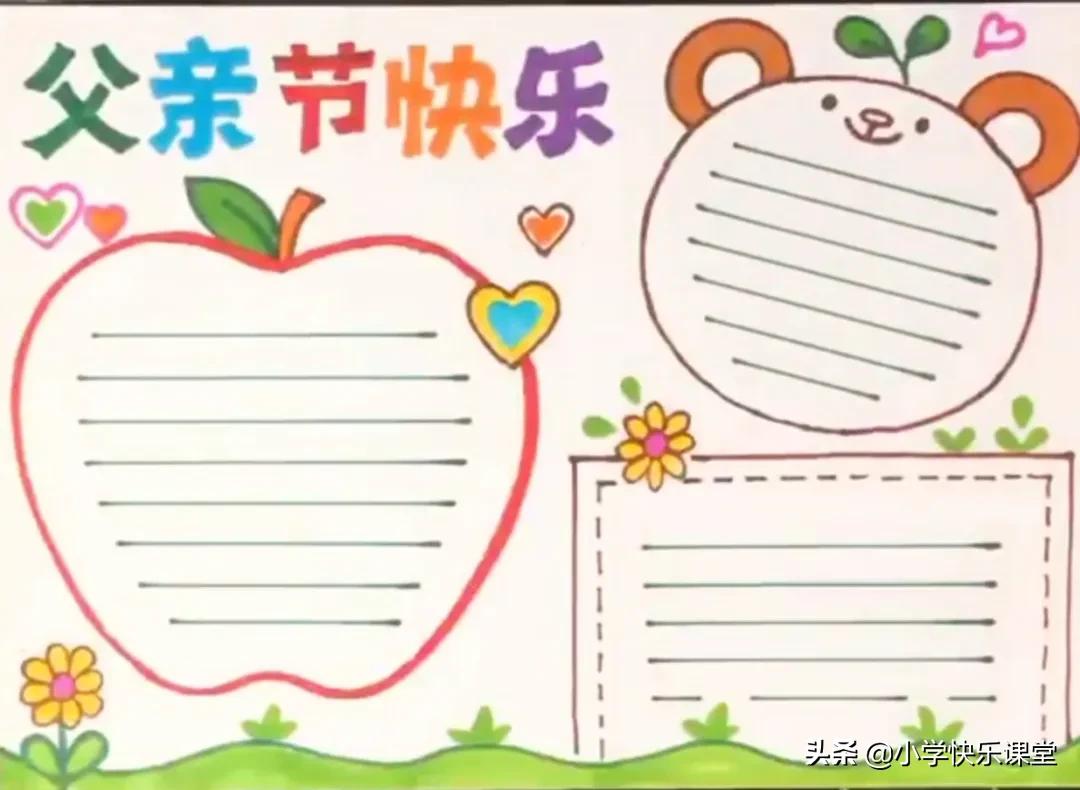 父亲节快乐
头条 @小学快乐课堂